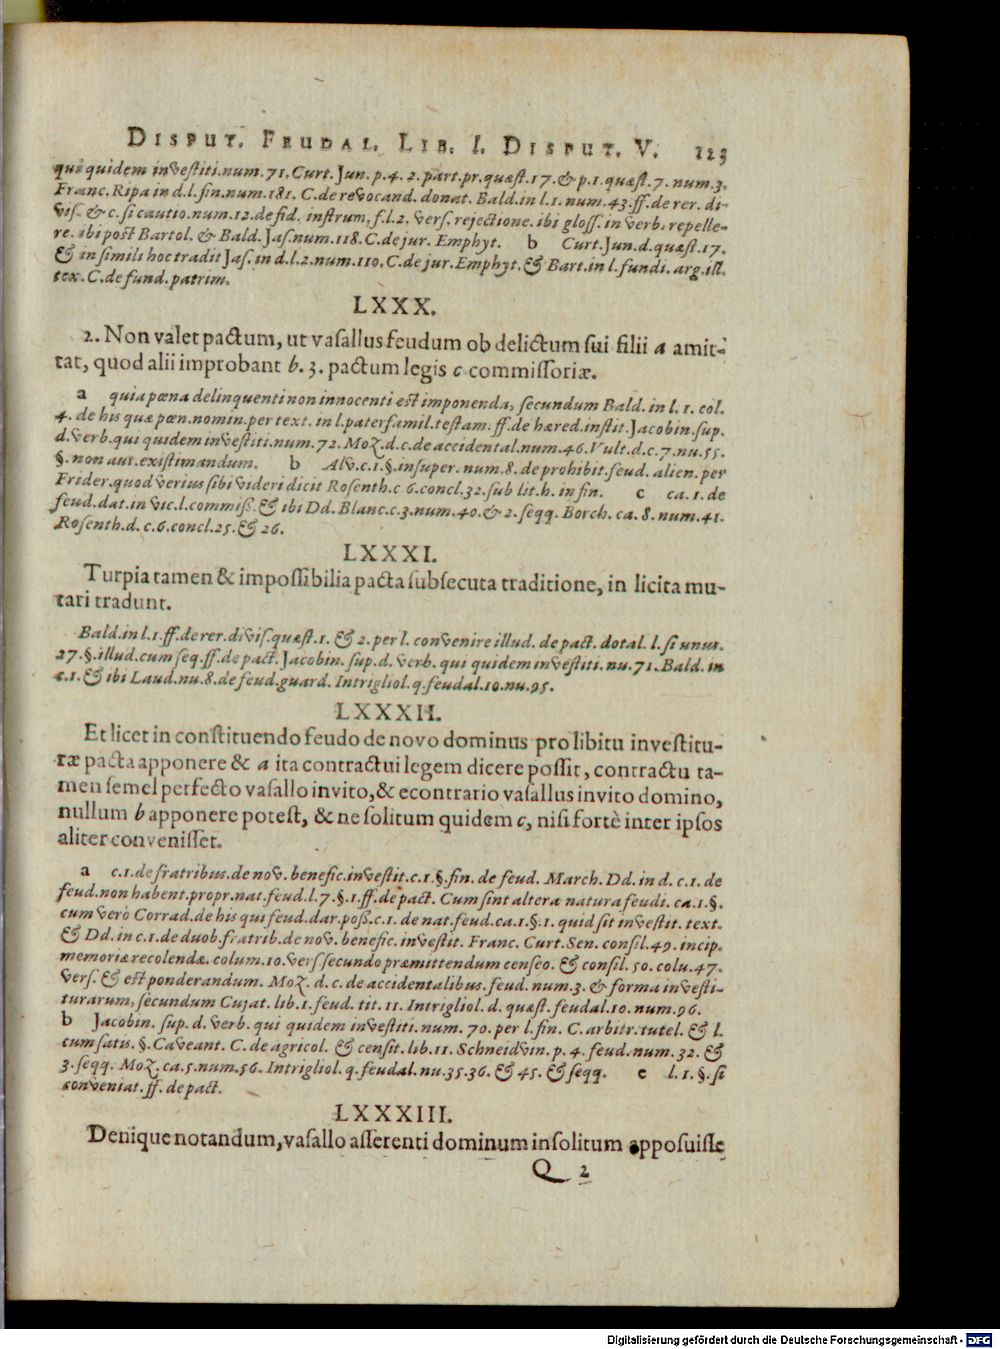 DISPUT. FEUDAL. LIB. I. DISPUT. V. 123
qui quidem investiti. num. 71. Curt. Jun. p. 4. 2. part. pr. quæst. 17. & p. 1. quæst. 7. num. 3.
Franc. Ripa in d. l. fin. num. 181. C. de revocand. donat. Bald. in l. 1. num. 43. ff. de rer. di-
vis. & c. si cautio. num. 12. de fid. instrum, f. l. 2. vers. rejectione. ibi gloss. in verb. repelle-
re. ibi post Bartol. & Bald. Jas. num. 118. C. de jur. Emphyt. b Curt. Jun. d. quæst. 17.
& in simili hoc tradit Jas. in d. l. 2. num. 110. C. de jur. Emphyt. & Bart. in l. fundi. arg. ill.
tex. C. de fund. patrim.
LXXX.
2. Non valet pactum, ut vasallus feudum ob delictum sui filii a amit-
tat, quod alii improbant b. 3. pactum legis c commissoriæ.
a quia pœna delinquenti non innocenti est imponenda, secundum Bald. in l. 1. col.
4. de his quæ pœn. nomin. per text. in l. paterfamil. testam. ff. de hæred. instit. Jacobin. sup.
d. verb. qui quidem investiti. num. 72. Moz. d. c. de accidental. num. 46. Vult. d. c. 7. nu. 55.
§. non aut. existimandum. b Alv. c. 1. §. insuper. num. 8. de prohibit. feud. alien. per
Frider. quod verius sibi videri dicit Rosenth. c 6. concl. 32. sub lit. h. in fin. c ca. 1. de
feud. dat. in vic. l. commiss. & ibi Dd. Blanc. c. 3. num. 40. & 2. seqq. Borch. ca. 8. num. 41.
Rosenth. d. c. 6. concl. 25. & 26.
LXXXI.
Turpia tamen & impossibilia pacta subsecuta traditione, in licita mu-
tari tradunt.
Bald. in l. 1. ff. de rer. divis. quæst. 1. & 2. per l. convenire illud. de pact. dotal. l. si unus.
27. §. illud. cum seq. ff. de pact. Jacobin. sup. d. verb. qui quidem investiti. nu. 71. Bald. in
c. 1. & ibi Laud. nu. 8. de feud. guard. Intrigliol. q. feudal. 10. nu. 95.
LXXXII.
Et licet in constituendo feudo de novo dominus pro libitu investitu-
ræ pacta apponere & a ita contractui legem dicere possit, contractu ta-
men semel perfecto vasallo invito, & econtrario vasallus invito domino,
nullum b apponere potest, & ne solitum quidem c, nisi fortè inter ipsos
aliter convenisset.
a c. 1. de fratribus. de nov. benefic. investit. c. 1. §. fin. de feud. March. Dd. in d. c. 1. de
feud. non habent. propr. nat. feud. l. 7. §. 1. ff. de pact. Cum sint altera natura feudi. ca. 1. §.
cum verò Corrad. de his qui feud. dar. poss. c. 1. de nat. feud. ca. 1. §. 1. quid sit investit. text.
& Dd. in c. 1. de duob. fratrib. de nov. benefic. investit. Franc. Curt. Sen. consil. 49. incip.
memoriæ recolendæ. colum. 10. vers secundo præmittendum censeo. & consil. 50. colu. 47.
vers. & est ponderandum. Moz. d. c. de accidentalibus. feud. num. 3. & forma investi-
turarum, secundum Cujat. lib. 1. feud. tit. 11. Intrigliol. d. quæst. feudal. 10. num. 96.
b Jacobin. sup. d. verb. qui quidem investiti. num. 70. per l. fin. C. arbitr. tutel. & l.
cum satis. §. Caveant. C. de agricol. & censit. lib. 11. Schneidvin. p. 4. feud. num. 32. &
3. seqq. Moz. ca. 5. num. 56. Intrigliol. q. feudal. nu. 35. 36. & 45. & seqq. c l. 1. §. si
conveniat. ff. de pact.
LXXXIII.
Denique notandum, vasallo asserenti dominum insolitum apposuisse
Q 2
Digitalisierung gefördert durch die Deutsche Forschungsgemeinschaft - DFG